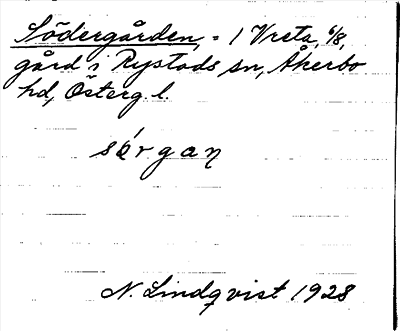 Södergården, = 1 Vreta, 6/8,
gård i Rystads sn, Åkerbo
hd, Österg. l.
sórgaƞ
N. Lindqvist 1928